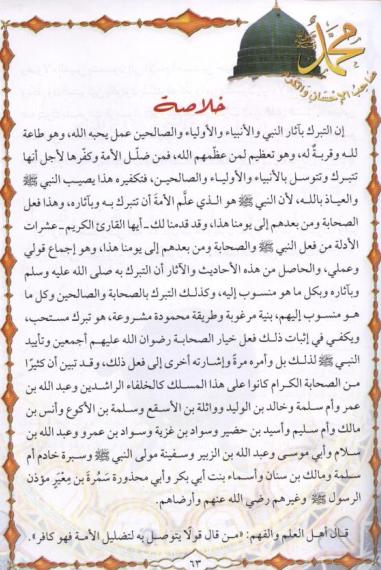 محمد ﷺ
صاحب الإحسان والكمال
خلاصة
إن التبرك بآثار النبي والأنبياء والأولياء والصالحين عمل يحبه الله، وهو طاعة
لله وقربةٌ له، وهو تعظيم لمن عظّمهم الله، فمن ضلّل الأمة وكفّرها لأجل أنها
تتبرك وتتوسل بالأنبياء والأولياء والصالحين، فتكفيره هذا يصيب النبي ﷺ
والعياذ بالله، لأن النبي ﷺ هو الذي علَّم الأمةَ أن تتبرك به وبآثاره، وهذا فعل
الصحابة ومن بعدهم إلى يومنا هذا، وقد قدمنا لك -أيها القارئ الكريم- عشرات
الأدلة من فعل النبي ﷺ والصحابة ومن بعدهم إلى يومنا هذا، وهو إجماع قولي
وعملي، والحاصل من هذه الأحاديث والآثار أن التبرك به صلى الله عليه وسلم
وبآثاره وبكل ما هو منسوب إليه، وكذلك التبرك بالصحابة والصالحين وكل ما
هو منسوب إليهم، بنية مرغوبة وطريقة محمودة مشروعة، هو تبرك مستحب،
ويكفي في إثبات ذلك فعل خيار الصحابة رضوان الله عليهم أجمعين وتأييد
النبي ﷺ لذلك بل وأمره مرةً وإشارته أخرى إلى فعل ذلك، وقد تبين أن كثيرًا
من الصحابة الكرام كانوا على هذا المسلك كالخلفاء الراشدين وعبد الله بن
عمر وأم سلمة وخالد بن الوليد وواثلة بن الأسقع وسلمة بن الأكوع وأنس بن
مالك وأم سليم وأسيد بن حضير وسواد بن غزية وسواد بن عمرو وعبد الله بن
سلام وأبي موسى وعبد الله بن الزبير وسفينة مولى النبي ﷺ وسبرة خادم أم
سلمة ومالك بن سنان وأسماء بنت أبي بكر وأبي محذورة سَمُرة بن مِعْيَر مؤذن
الرسول ﷺ وغيرهم رضي الله عنهم وأرضاهم.
قال أهل العلم والفهم: «من قال قولًا يتوصل به لتضليل الأمة فهو كافر».
٦٣